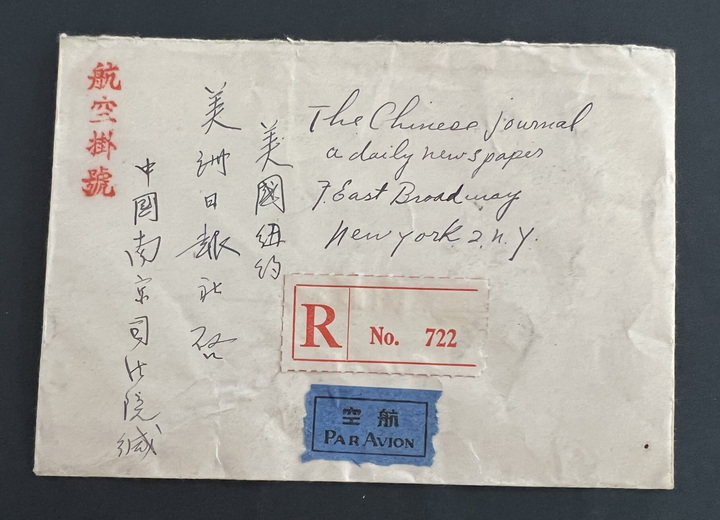 The Chinese Journal
a daily newspaper
7 East Broadway
New York 2, N.Y.
美國紐約
美洲日報社啓
中國南京司法院緘
航空掛號
R No. 722
空航
PAR AVION